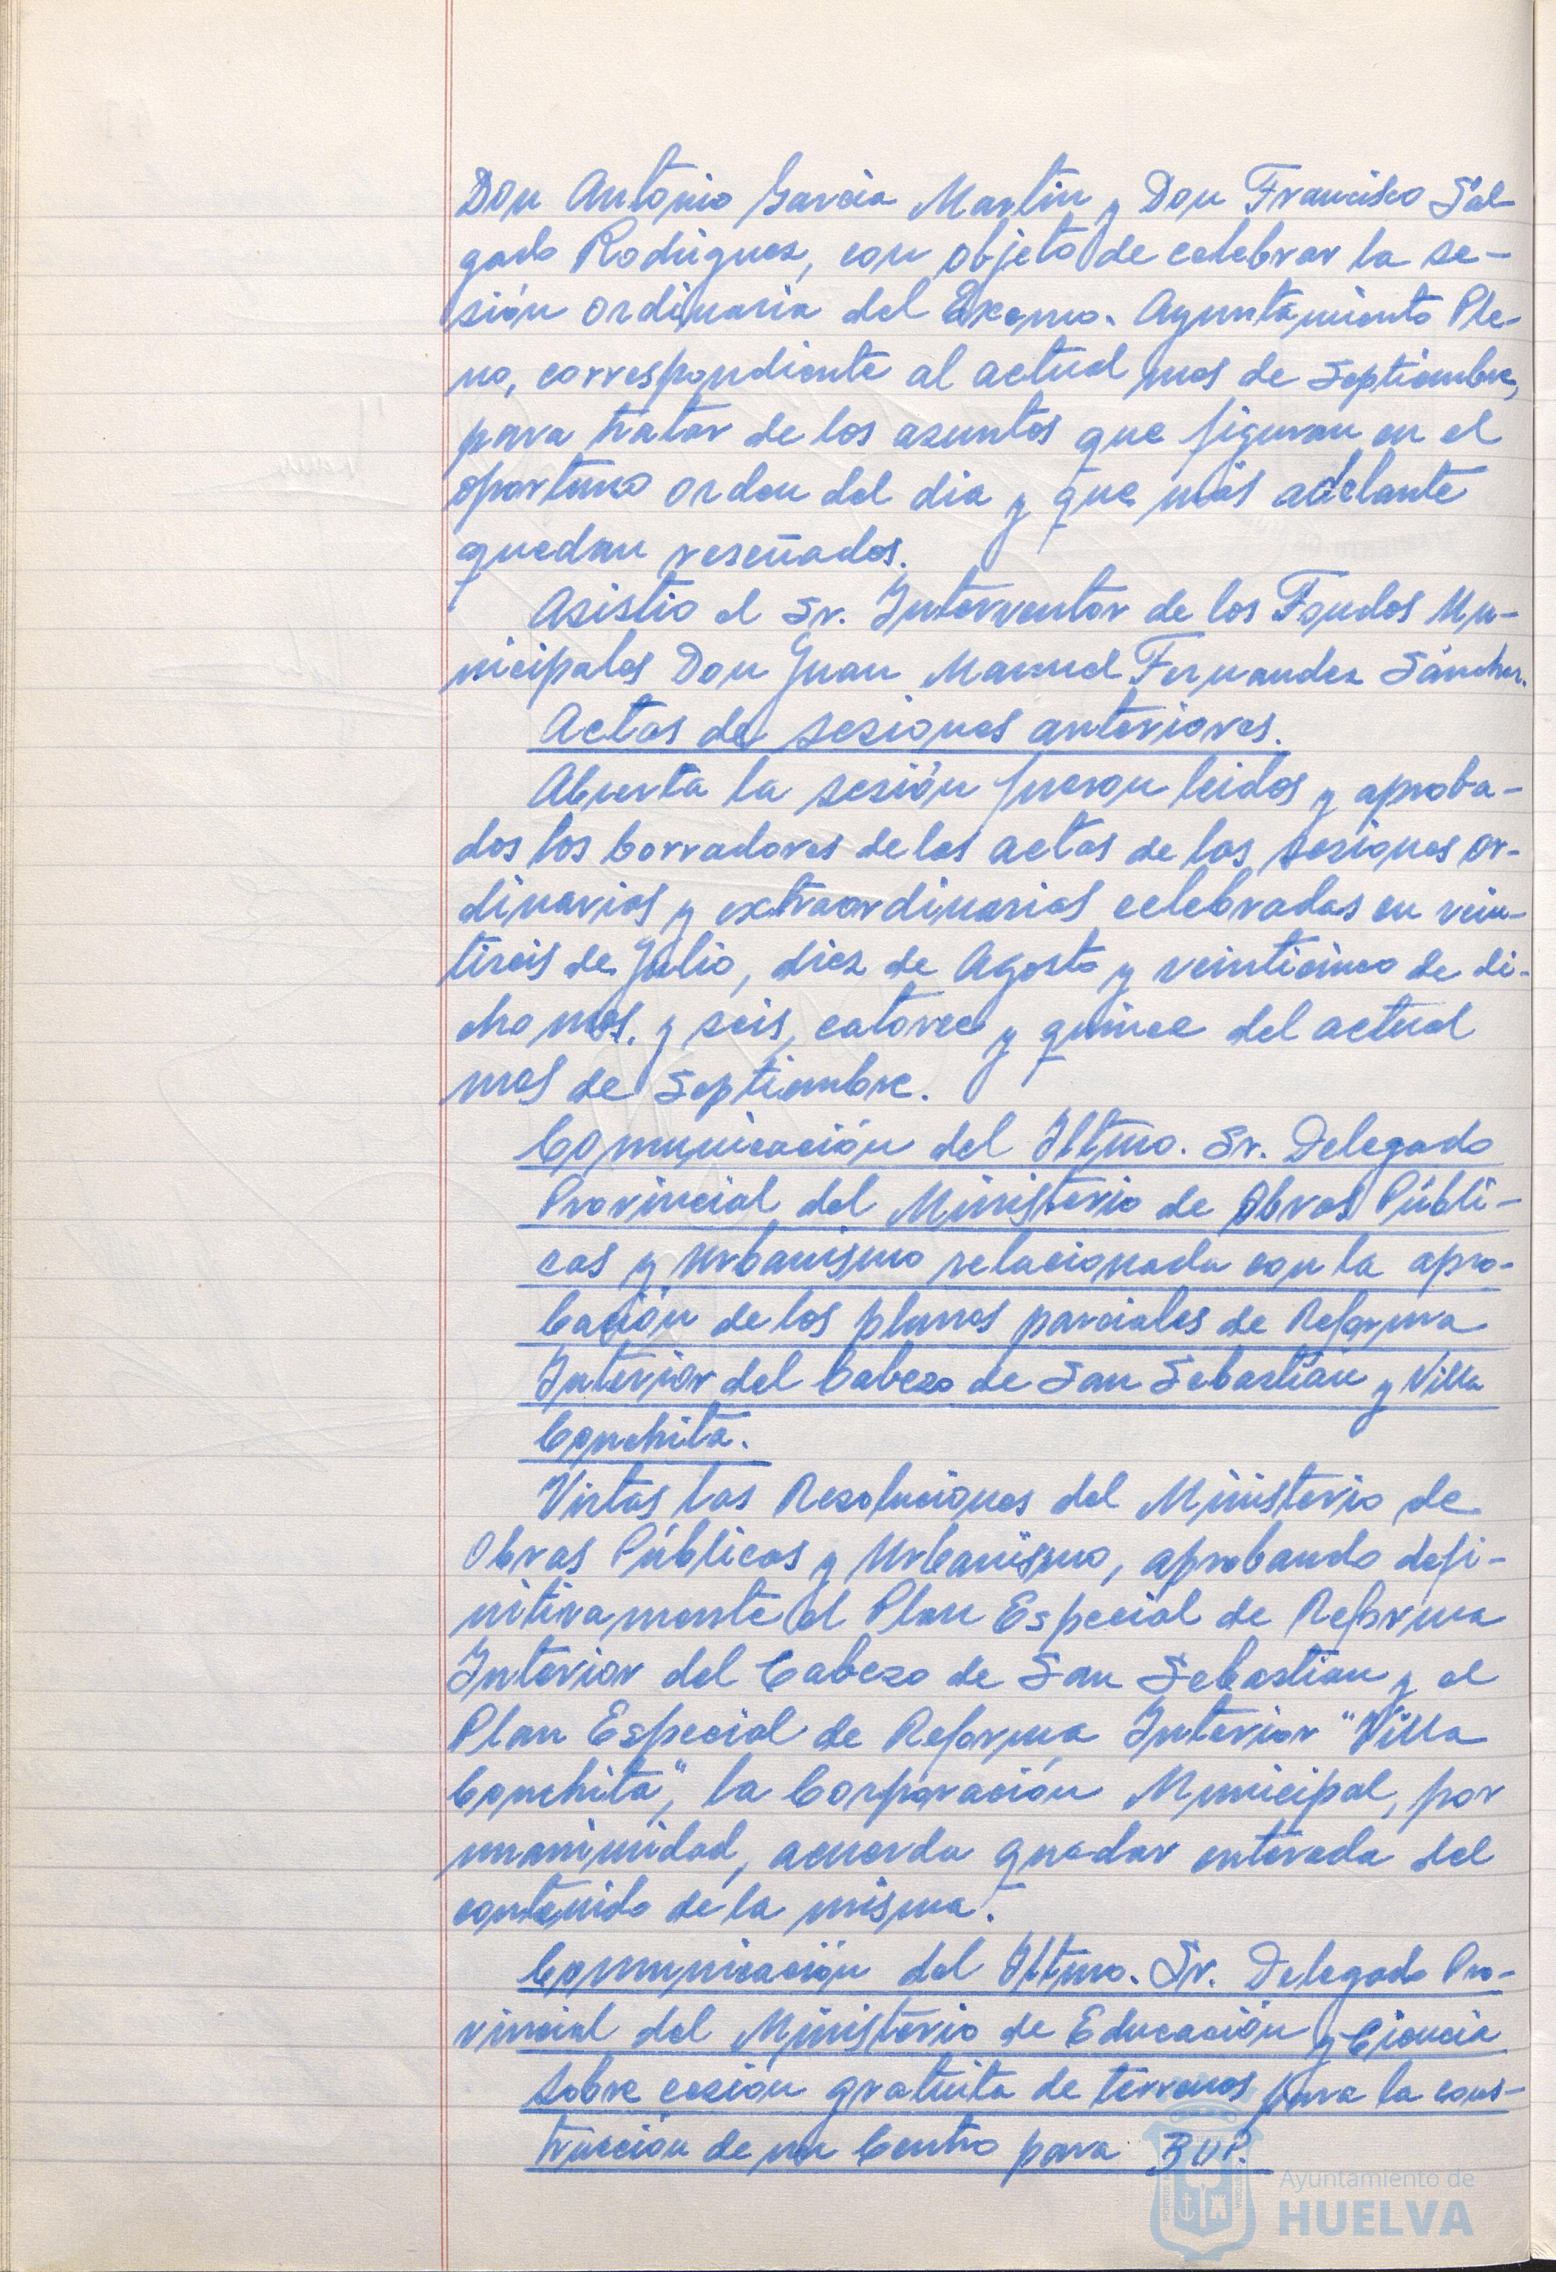 Don Antonio García Martín y Don Francisco Sal-
gado Rodríguez, con objeto de celebrar la se-
sión ordinaria del Excmo. Ayuntamiento Ple-
no, correspondiente al actual mes de Septiembre,
para tratar de los asuntos que figuran en el
oportuno orden del dia y que más adelante
quedan reseñados.
Asistio el Sr. Interventor de los Fondos Mu-
nicipales Don Juan Manuel Fernandez Sánchez.
Actas de sesiones anteriores.
Abierta la sesión fueron leidos y aproba-
dos los borradores de las actas de las sesiones or-
dinarias y extraordinarias celebradas en vein-
tiseis de Julio, diez de Agosto y veinticinco de di-
cho mes, y seis, catorce y quince del actual
mes de Septiembre.
Comunicación del Iltmo. Sr. Delegado
Provincial del Ministerio de Obras Públi-
cas y Urbanismo relacionada con la apro-
bación de los planes parciales de Reforma
Interior del Cabezo de San Sebastián y Villa
Conchita.
Vistas las Resoluciones del Ministerio de
Obras Públicas y Urbanismo, aprobando defi-
nitivamente el Plan Especial de Reforma
Interior del Cabezo de San Sebastian y el
Plan Especial de Reforma Interior "Villa
Conchita", la Corporación Municipal, por
unanimidad, acuerda quedar enterada del
contenido de la misma.
Comunicación del Iltmo. Sr. Delegado Pro-
vincial del Ministerio de Educación y Ciencia
sobre cesión gratuita de terrenos para la cons-
trucción de un Centro para BUP.
Ayuntamiento de
HUELVA